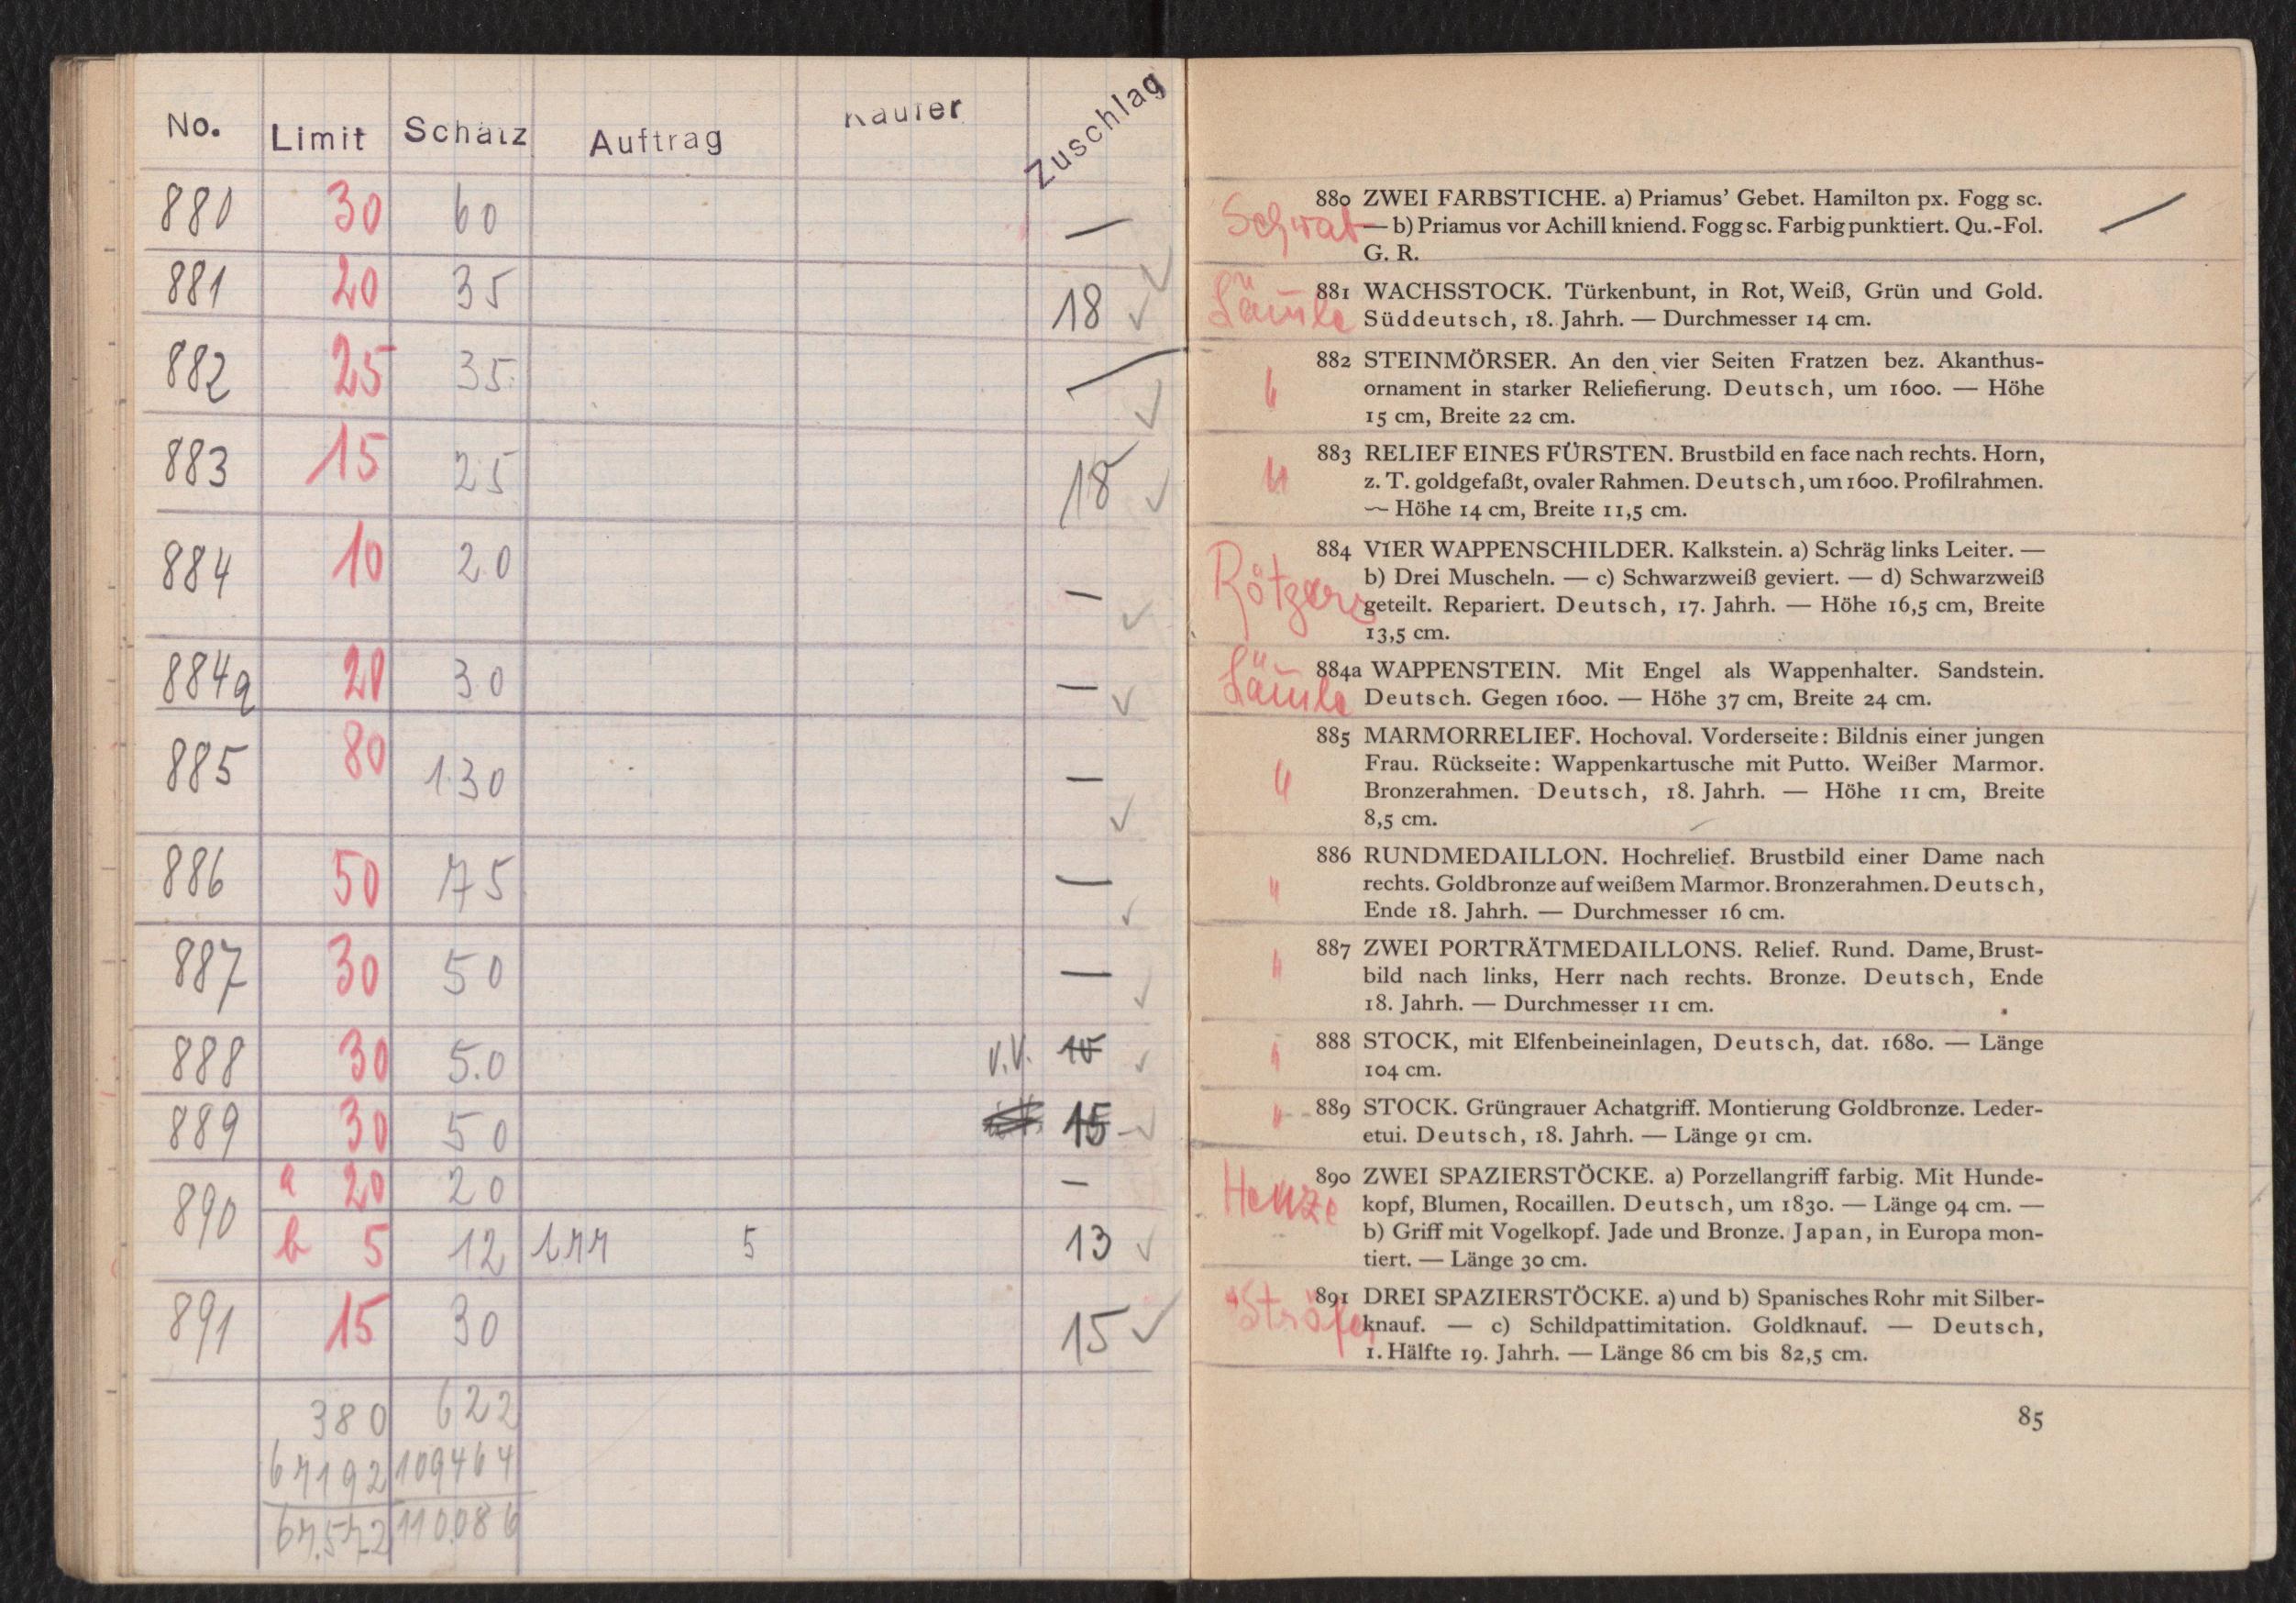 No. Limit Schatz Auftrag Käufer Zuschlag
880 30 60 —
881 20 35 18 ✓
882 25 35 — ✓
883 15 25 18 ✓
884 10 20 — ✓
884a 20 30 — ✓
885 80 130 — ✓
886 50 75 — ✓
887 30 50 — ✓
888 30 50 V.V. 15 ✓
889 30 50 15 ✓
890 a 20 20 —
b 5 12 177 5 13 ✓
891 15 30 15 ✓
380 622
67192 109464
67.572 110.086
Schwab
880 ZWEI FARBSTICHE. a) Priamus’ Gebet. Hamilton px. Fogg sc.
— b) Priamus vor Achill kniend. Fogg sc. Farbig punktiert. Qu.-Fol.
G. R.
881 WACHSSTOCK. Türkenbunt, in Rot, Weiß, Grün und Gold.
Süddeutsch, 18. Jahrh. — Durchmesser 14 cm.
882 STEINMÖRSER. An den vier Seiten Fratzen bez. Akanthus-
ornament in starker Reliefierung. Deutsch, um 1600. — Höhe
15 cm, Breite 22 cm.
"
883 RELIEF EINES FÜRSTEN. Brustbild en face nach rechts. Horn,
z. T. goldgefaßt, ovaler Rahmen. Deutsch, um 1600. Profilrahmen.
— Höhe 14 cm, Breite 11,5 cm.
"
884 VIER WAPPENSCHILDER. Kalkstein. a) Schräg links Leiter. —
b) Drei Muscheln. — c) Schwarzweiß geviert. — d) Schwarzweiß
geteilt. Repariert. Deutsch, 17. Jahrh. — Höhe 16,5 cm, Breite
13,5 cm.
884a WAPPENSTEIN. Mit Engel als Wappenhalter. Sandstein.
Deutsch. Gegen 1600. — Höhe 37 cm, Breite 24 cm.
885 MARMORRELIEF. Hochoval. Vorderseite: Bildnis einer jungen
Frau. Rückseite: Wappenkartusche mit Putto. Weißer Marmor.
Bronzerahmen. Deutsch, 18. Jahrh. — Höhe 11 cm, Breite
8,5 cm.
"
886 RUNDMEDAILLON. Hochrelief. Brustbild einer Dame nach
rechts. Goldbronze auf weißem Marmor. Bronzerahmen. Deutsch,
Ende 18. Jahrh. — Durchmesser 16 cm.
"
887 ZWEI PORTRÄTMEDAILLONS. Relief. Rund. Dame, Brust-
bild nach links, Herr nach rechts. Bronze. Deutsch, Ende
18. Jahrh. — Durchmesser 11 cm.
"
888 STOCK, mit Elfenbeineinlagen, Deutsch, dat. 1680. — Länge
104 cm.
"
889 STOCK. Grüngrauer Achatgriff. Montierung Goldbronze. Leder-
etui. Deutsch, 18. Jahrh. — Länge 91 cm.
"
Henze
890 ZWEI SPAZIERSTÖCKE. a) Porzellangriff farbig. Mit Hunde-
kopf, Blumen, Rocaillen. Deutsch, um 1830. — Länge 94 cm. —
b) Griff mit Vogelkopf. Jade und Bronze. Japan, in Europa mon-
tiert. — Länge 30 cm.
891 DREI SPAZIERSTÖCKE. a) und b) Spanisches Rohr mit Silber-
knauf. — c) Schildpattimitation. Goldknauf. — Deutsch,
1. Hälfte 19. Jahrh. — Länge 86 cm bis 82,5 cm.
85